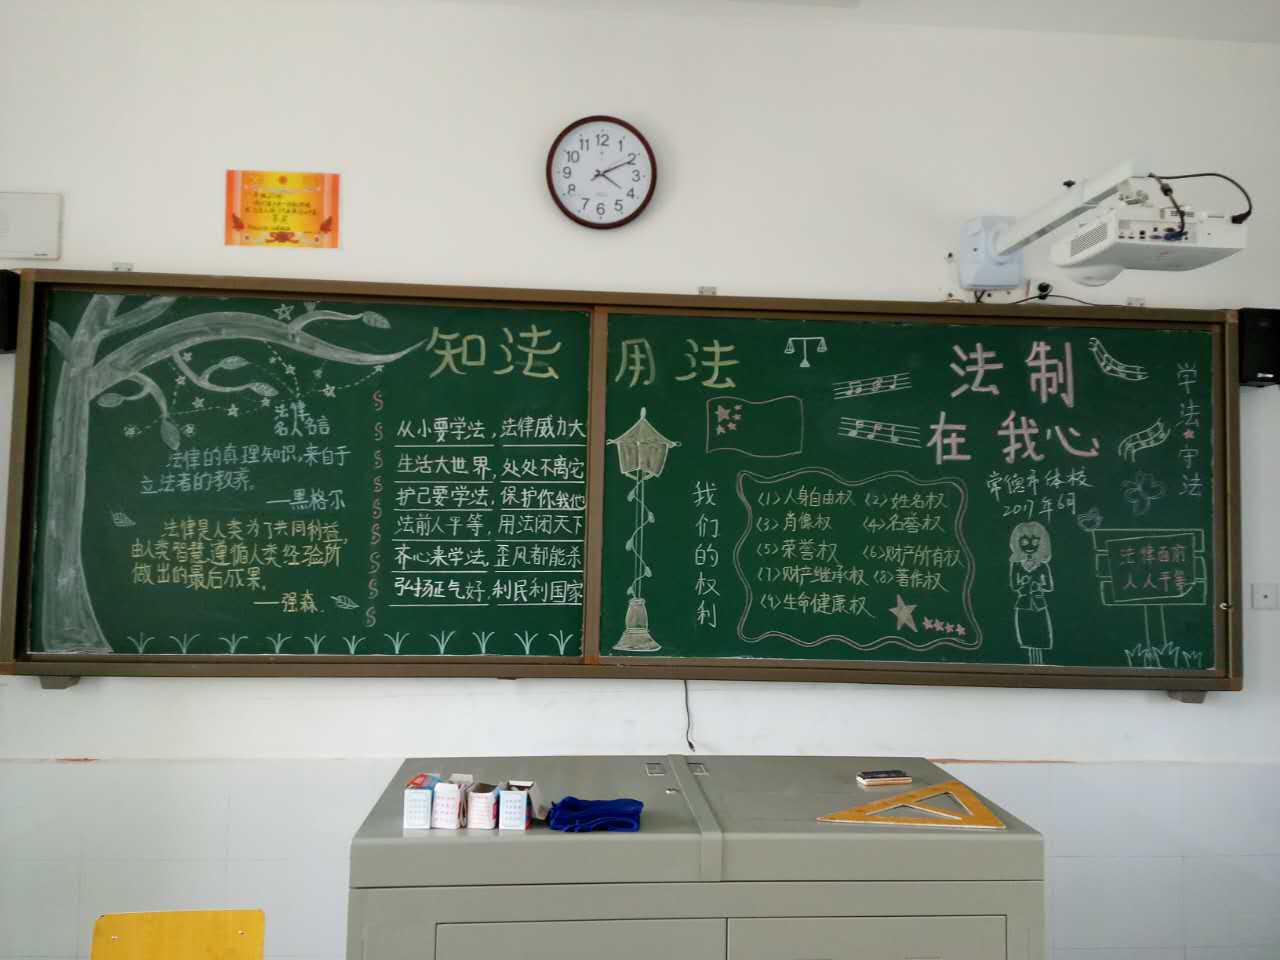 知法 用法
法制
在我心
常德市体校
2017年6月
学法★守法
法律
名人名言
法律的真理知识,来自于
立法者的教养。
——黑格尔
法律是人类为了共同利益,
由人类智慧遵循人类经验所
做出的最后成果。
——强森
从小要学法,法律威力大
生活大世界,处处不离它
护己要学法,保护你我他
法前人平等,用法闭天下
齐心来学法,歪风都能杀
弘扬正气好,利民利国家
我们的权利
(1)人身自由权 (2)姓名权
(3)肖像权 (4)名誉权
(5)荣誉权 (6)财产所有权
(7)财产继承权 (8)著作权
(9)生命健康权
法律面前
人人平等
12
1
2
3
4
5
6
7
8
9
10
11